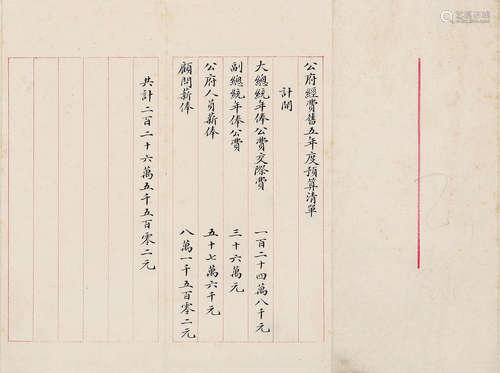 公府經費舊五年度預算清單
計開
大總統年俸公費交際費 一百二十四萬八千元
副總統年俸公費 三十六萬元
公府人員薪俸 五十七萬六千元
顧問薪俸 八萬一千五百零二元
共計二百二十六萬五千五百零二元